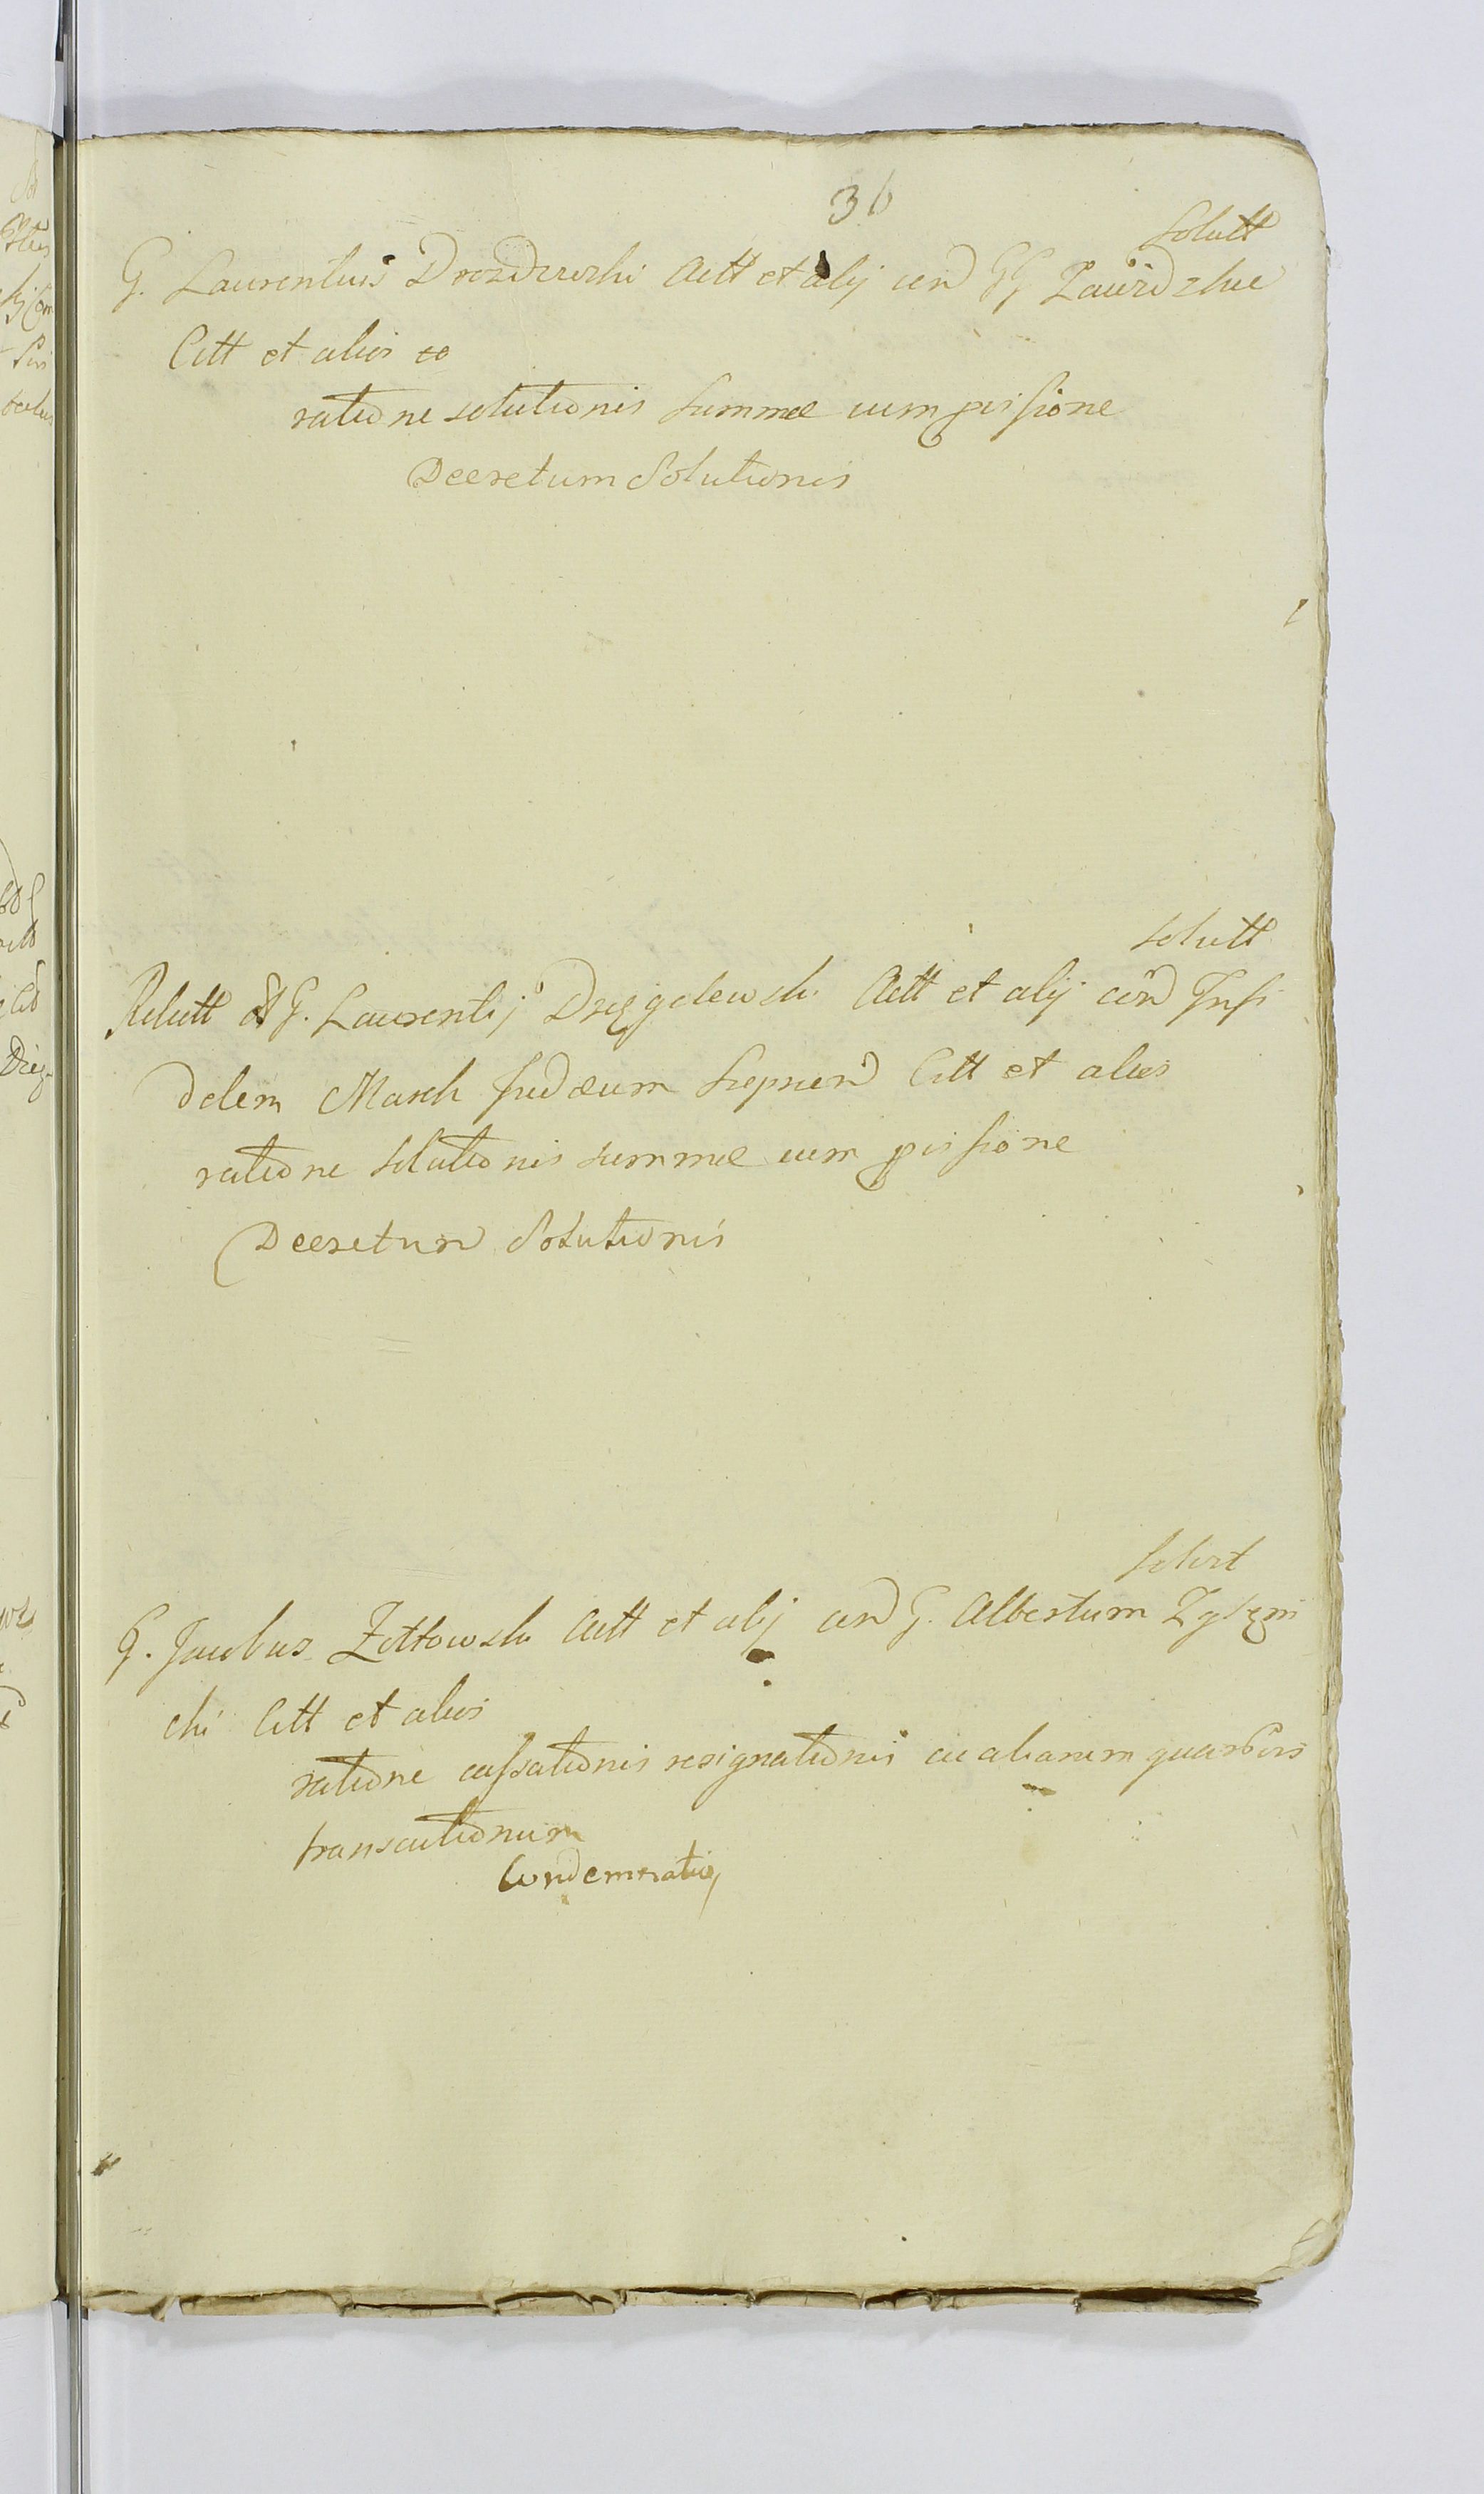 36
Solutt
G. Laurentius Drozdzewski Actt et alij con GG Zawidzkie
Citt et alios
ratione solutionis summæ cum pissione
Decretum Solutionis
solutt
Relutt G. Laurentij Drzęgolewski Actt et alij con Infi
delem Marsk Judæum Citt et alios
ratione solutionis summæ cum pissione
Decretum Solutionis
solvt
G. Jacobus Zottowski Actt et alij con G. Albertum
Citt et alios
ratione cassationis resignationis ac aliarum quarvis
transactionum
Condemnatio